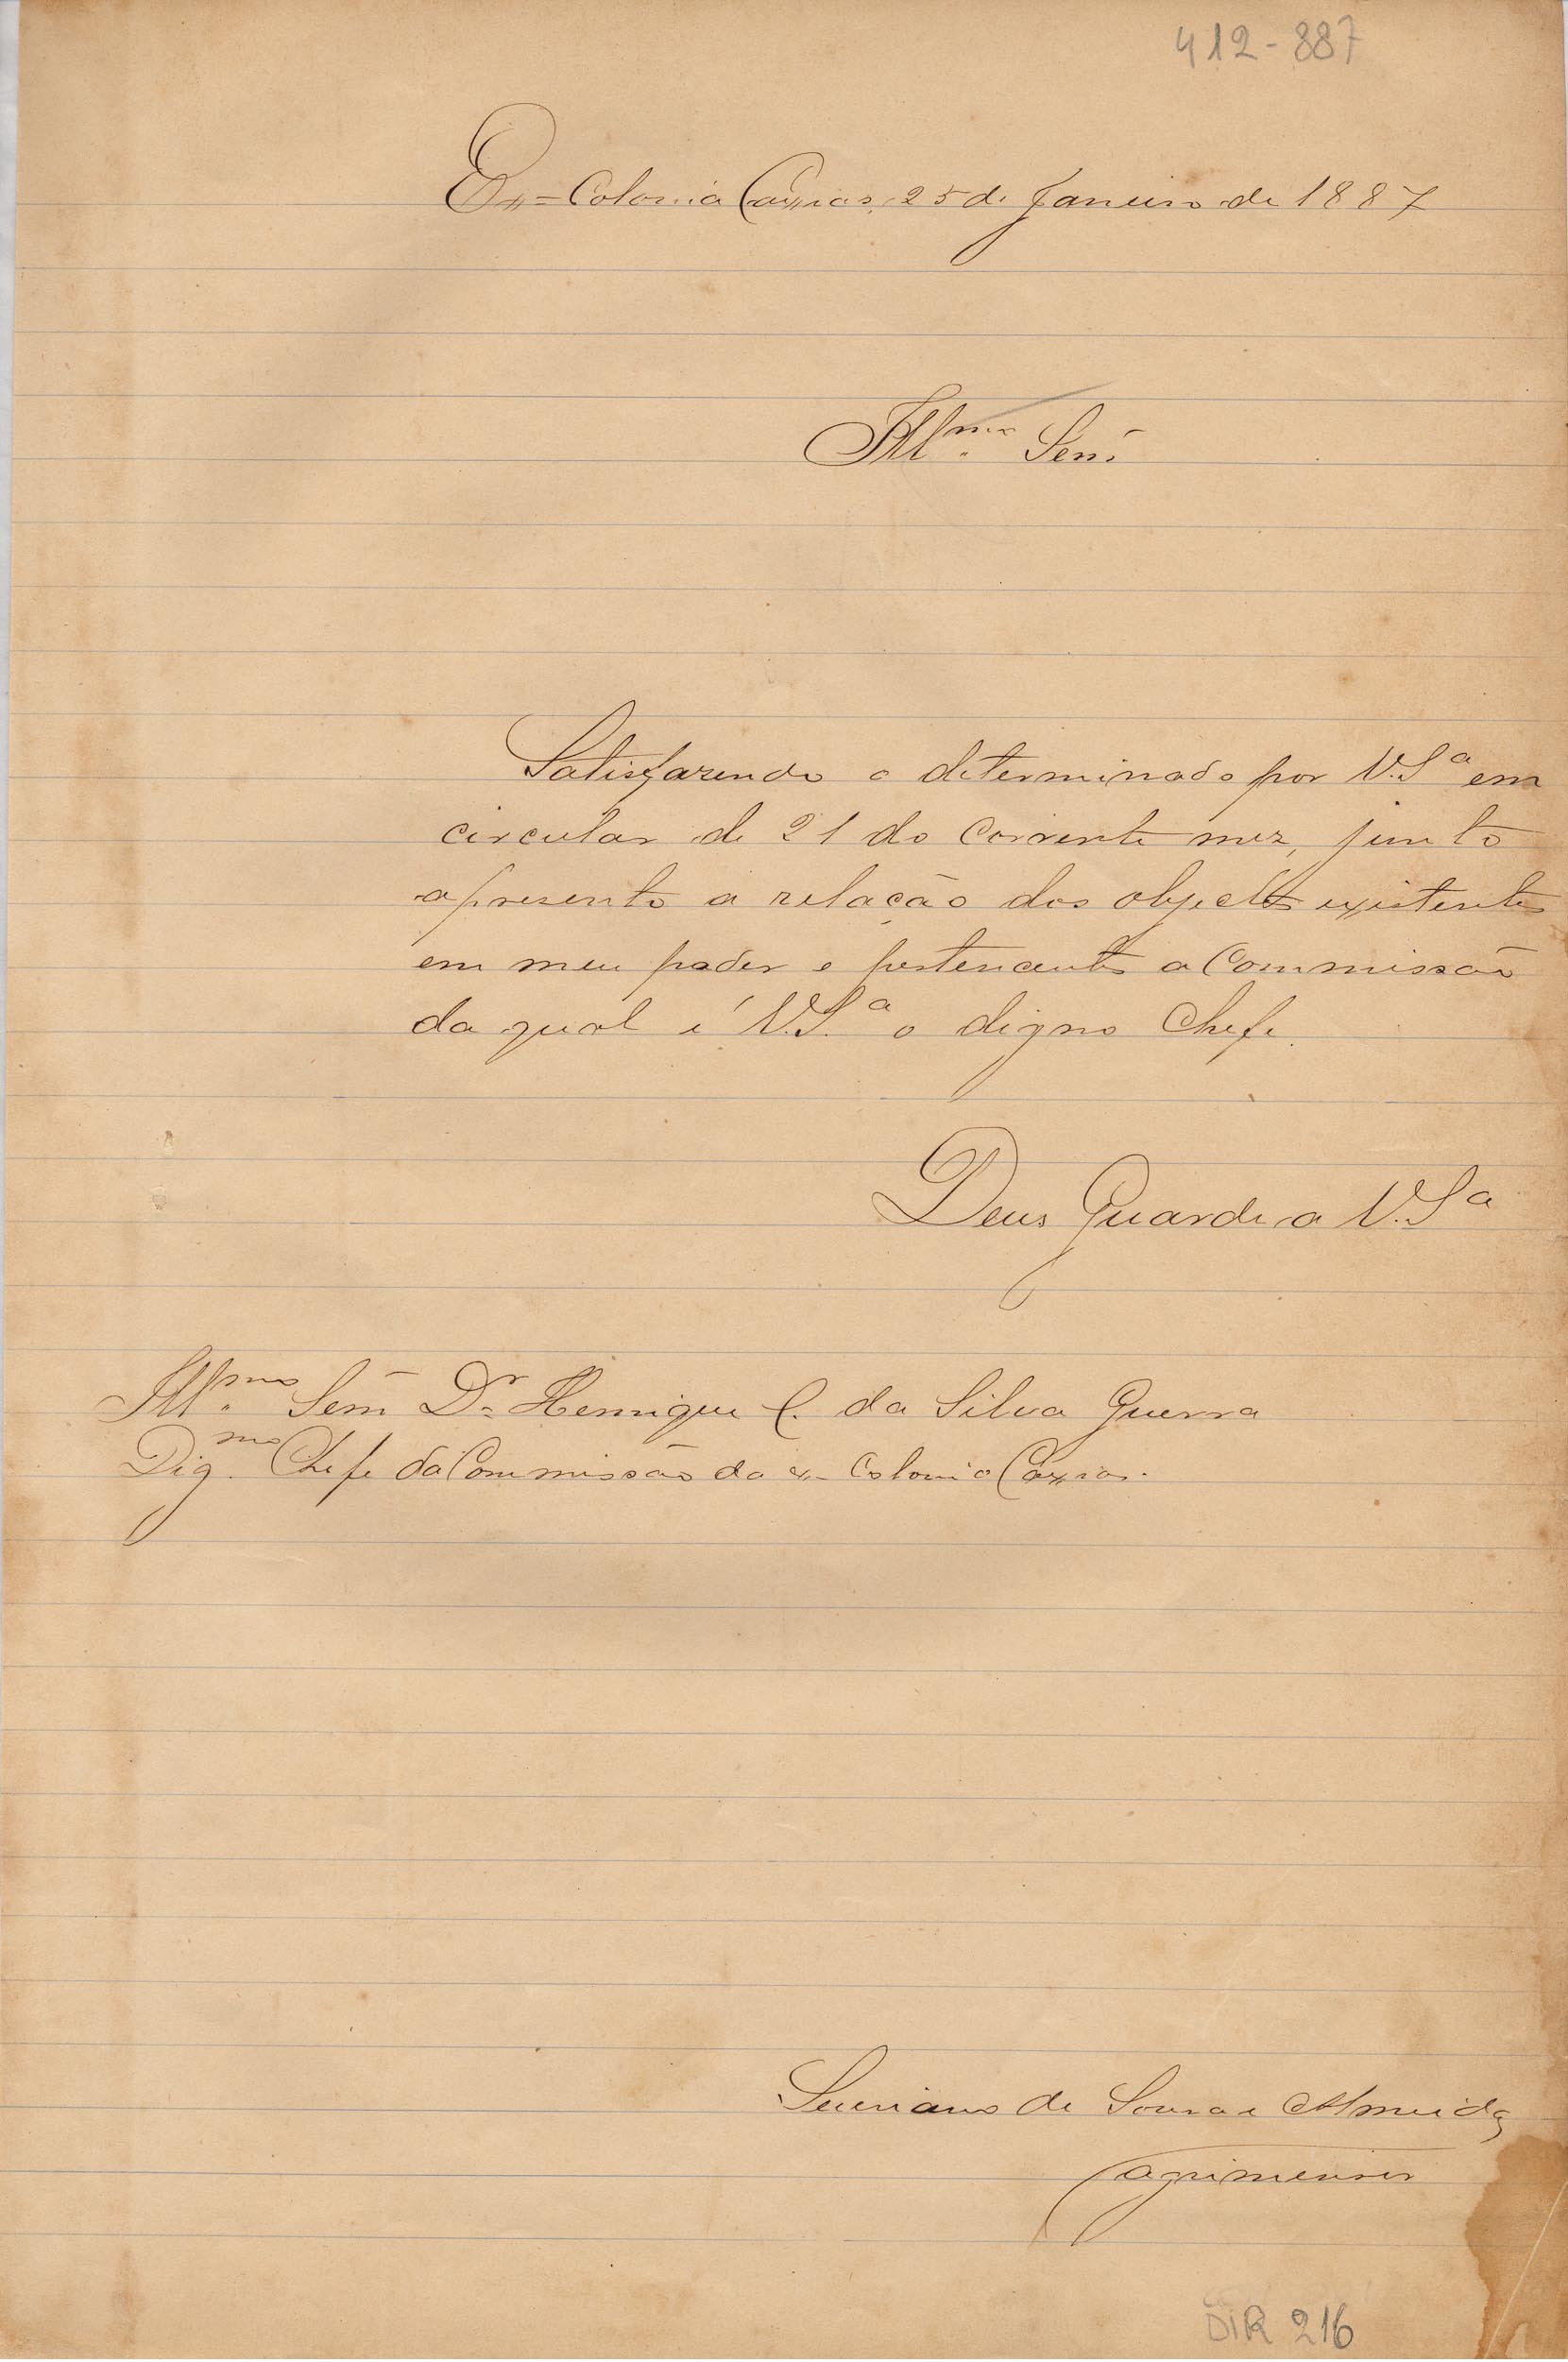 412-887
Ex=Colonia Caxias, 25 de Janeiro de 1887
Illmo. Senr.
Satisfazendo o determinado por V.Sª em
circular de 21 do corrente mez, junto
apresento a relação dos objectos existentes
em meu poder e pertencentes a Commissão
da qual é V.S.ª o digno Chefe.
Deus Guarde a V.Sª
Illmo. Senr Dr. Henrique C. da Silva Guerra
Digmo. Chefe da Commissão da ex-Colonia Caxias.
Severiano de Souza e Almeida
agrimensor
DIR 216